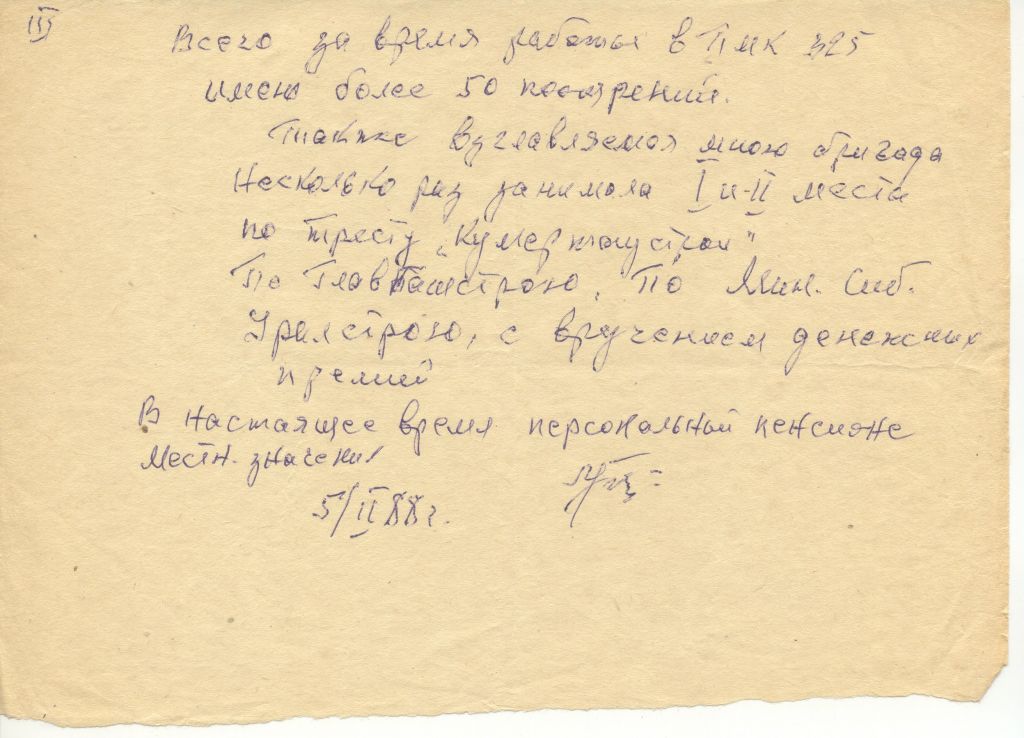 III)
Всего за время работы в ПМК 325
имею более 50 поощрений.
Также Возглавляемая мною бригада
Несколько раз занимала I и II места
по тресту „Кумертаустрой"
По Главбашстрою, По Мин. Сиб.
Уралстрою, с вручением денежных
премий
В настоящее время персональный пенсионе
Местн. значения
5/II 88 г.